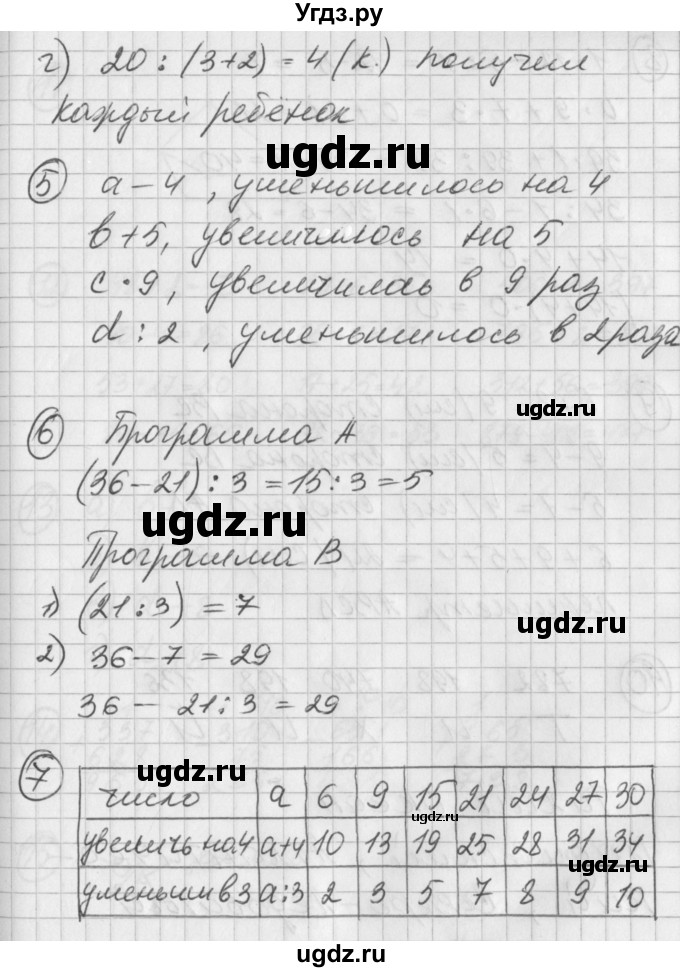 Угдз.ру
г) 20 : (3+2) = 4 (к.) получил
каждый ребёнок
ugdz.ru
ugdz.ru
5 a - 4, уменьшилось на 4
b + 5, увеличилось на 5
c · 9, увеличилась в 9 раз
d : 2, уменьшилось в 2 раза
ugdz.ru
6 Программа А
(36 - 21) : 3 = 15 : 3 = 5
ugdz.ru
Программа В
1) (21 : 3) = 7
ugdz.ru
2) 36 - 7 = 29
36 - 21 : 3 = 29
ugdz.ru
7
число a 6 9 15 21 24 27 30
ugdz.ru
увеличь на 4 a+4 10 13 19 25 28 31 34
ugdz.ru
уменьши в 3 a:3 2 3 5 7 8 9 10
ugdz.ru